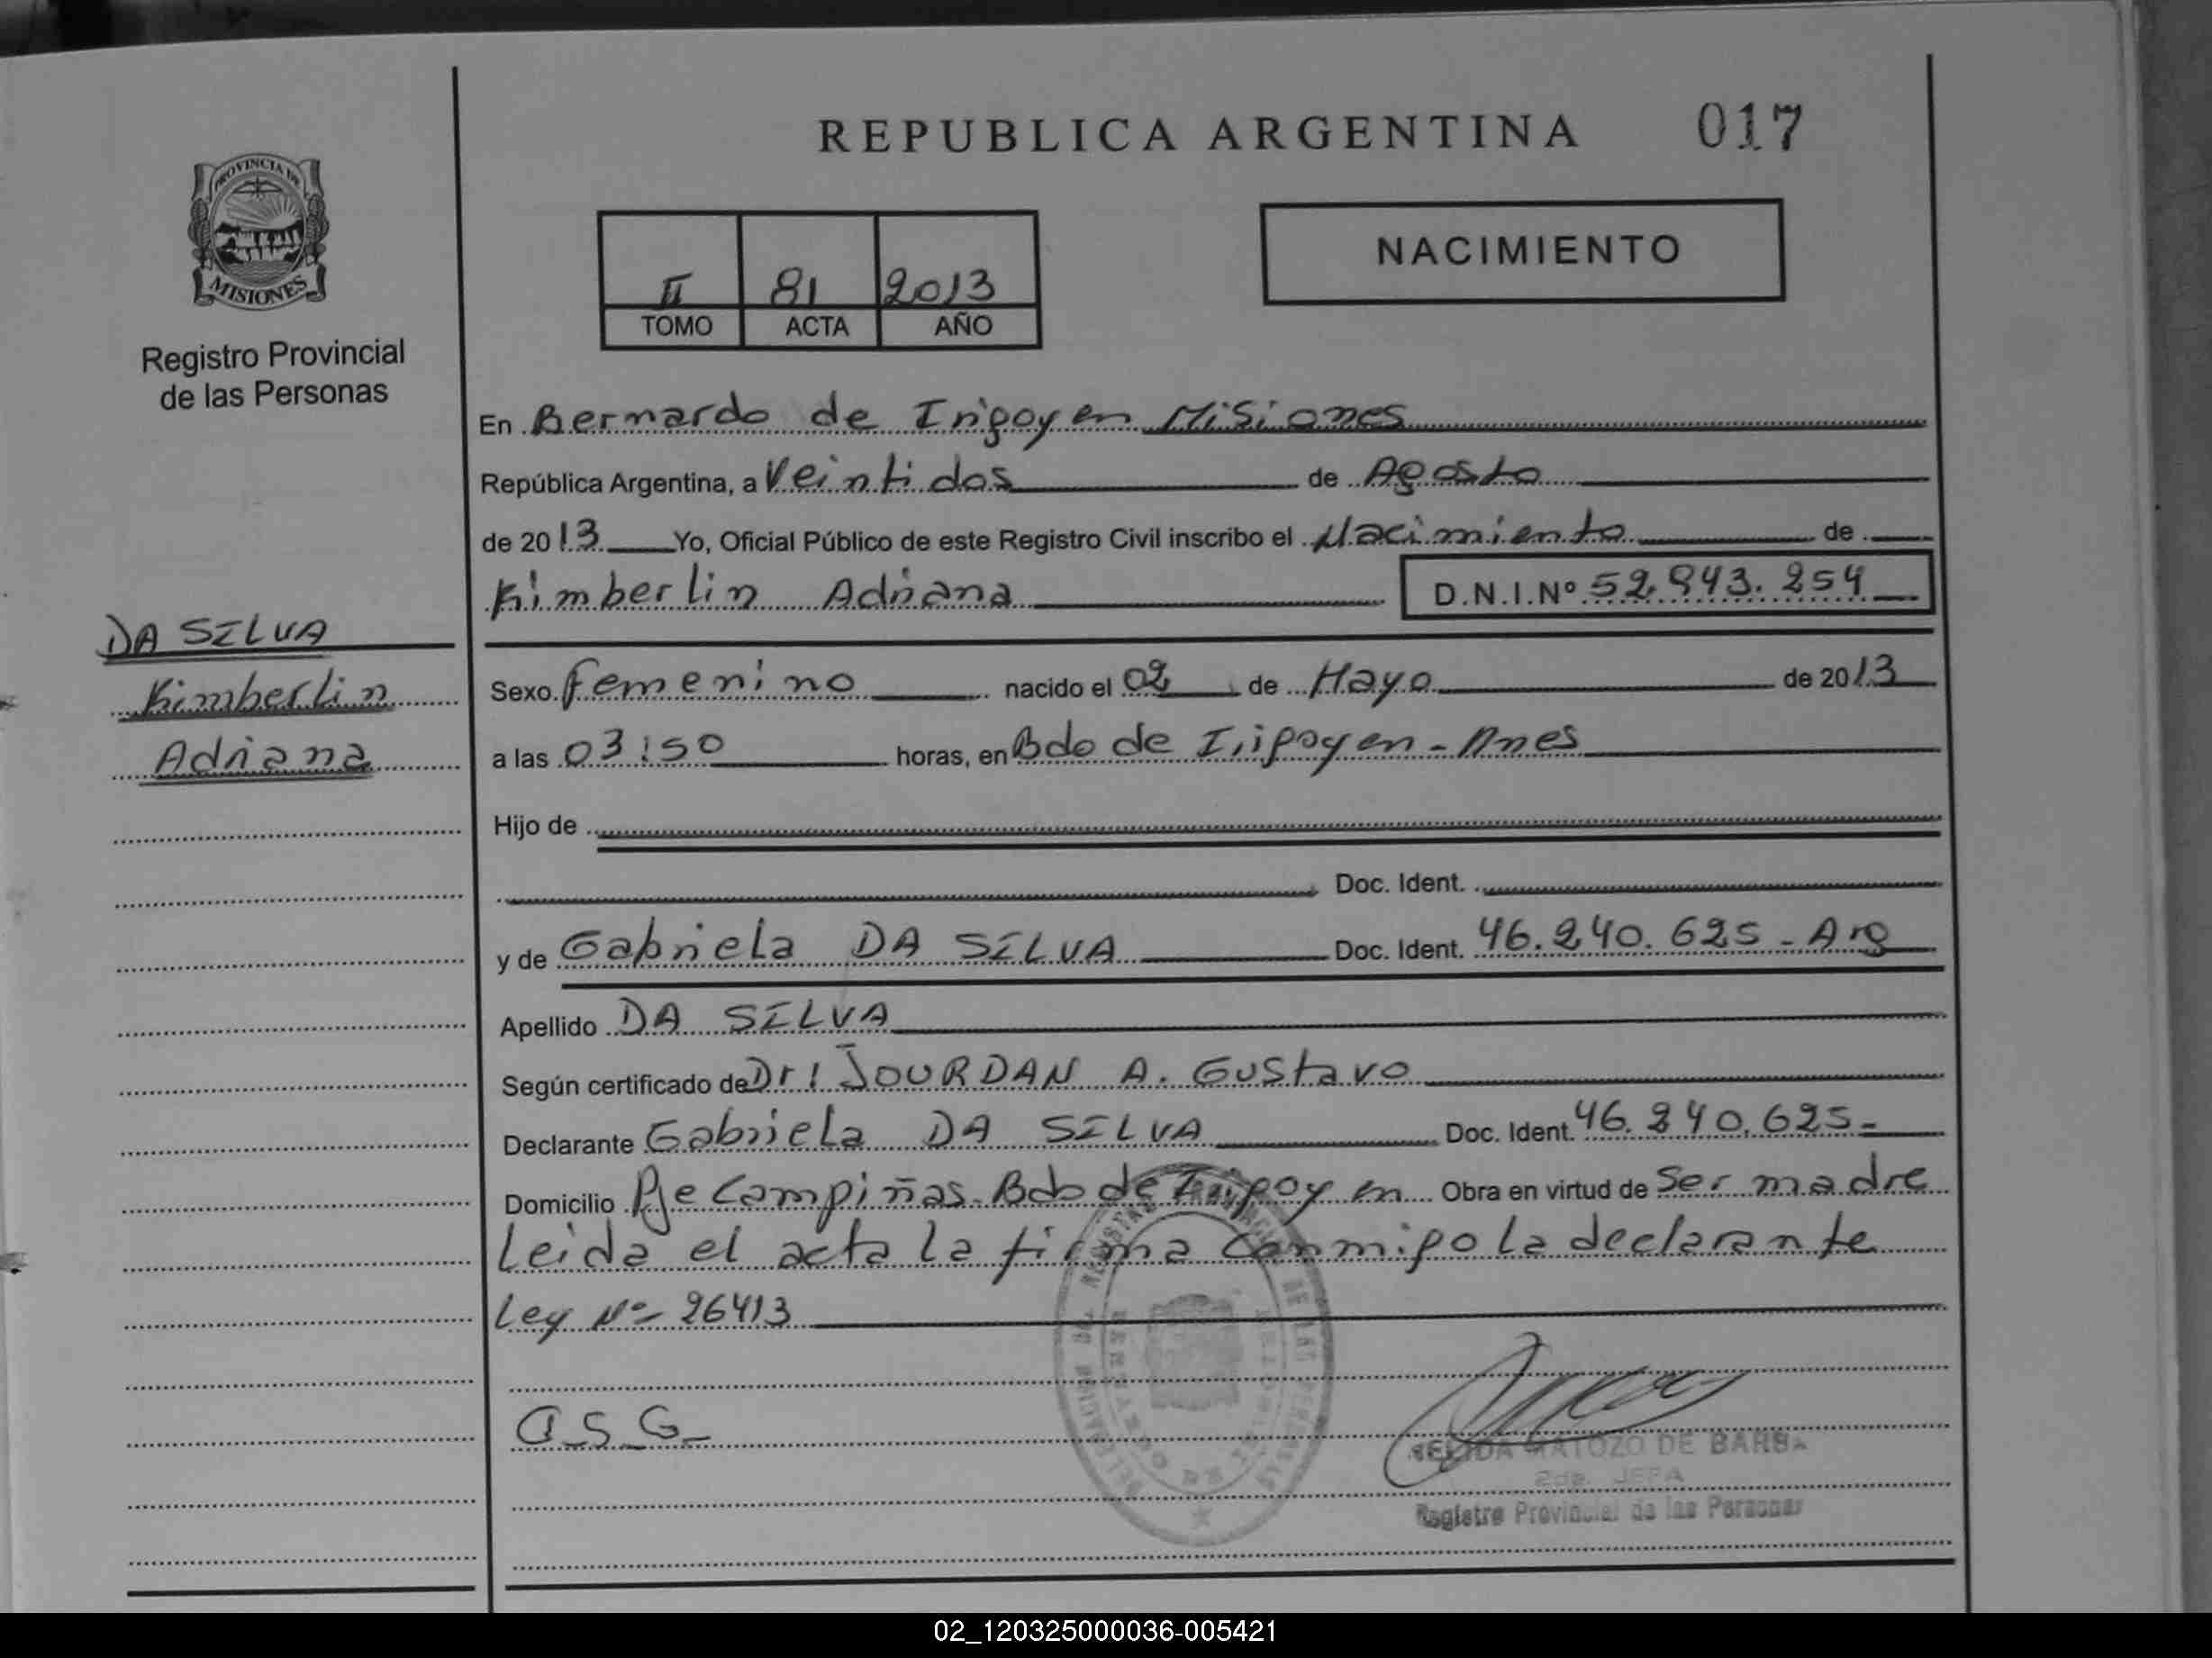 REPUBLICA ARGENTINA 017
PROVINCIA DE
MISIONES
Registro Provincial
de las Personas
NACIMIENTO
II 81 2013
TOMO ACTA AÑO
En Bernardo de Irigoyen Misiones
República Argentina, a Veintidos de Agosto
de 2013 Yo, Oficial Público de este Registro Civil inscribo el Nacimiento de
Kimberlin Adriana D.N.I.Nº 52.943.254
DA SILVA
Kimberlin
Adriana
Sexo femenino nacido el 02 de Mayo de 2013
a las 03:50 horas, en Bdo de Irigoyen - Mnes
Hijo de
Doc. Ident.
y de Gabriela DA SILVA Doc. Ident. 46.240.625 - Arg
Apellido DA SILVA
Según certificado de Dr: JOURDAN A. Gustavo
Declarante Gabriela DA SILVA Doc. Ident. 46.240.625-
Domicilio Pje Campiñas - Bdo de Irigoyen Obra en virtud de Ser madre
Leida el acta la firma conmigo la declarante
Ley Nº- 26413
G_S_G_
NELIDA MATOZO DE BARBA
2da. JEFA
Registro Provincial de las Personas
02_120325000036-005421